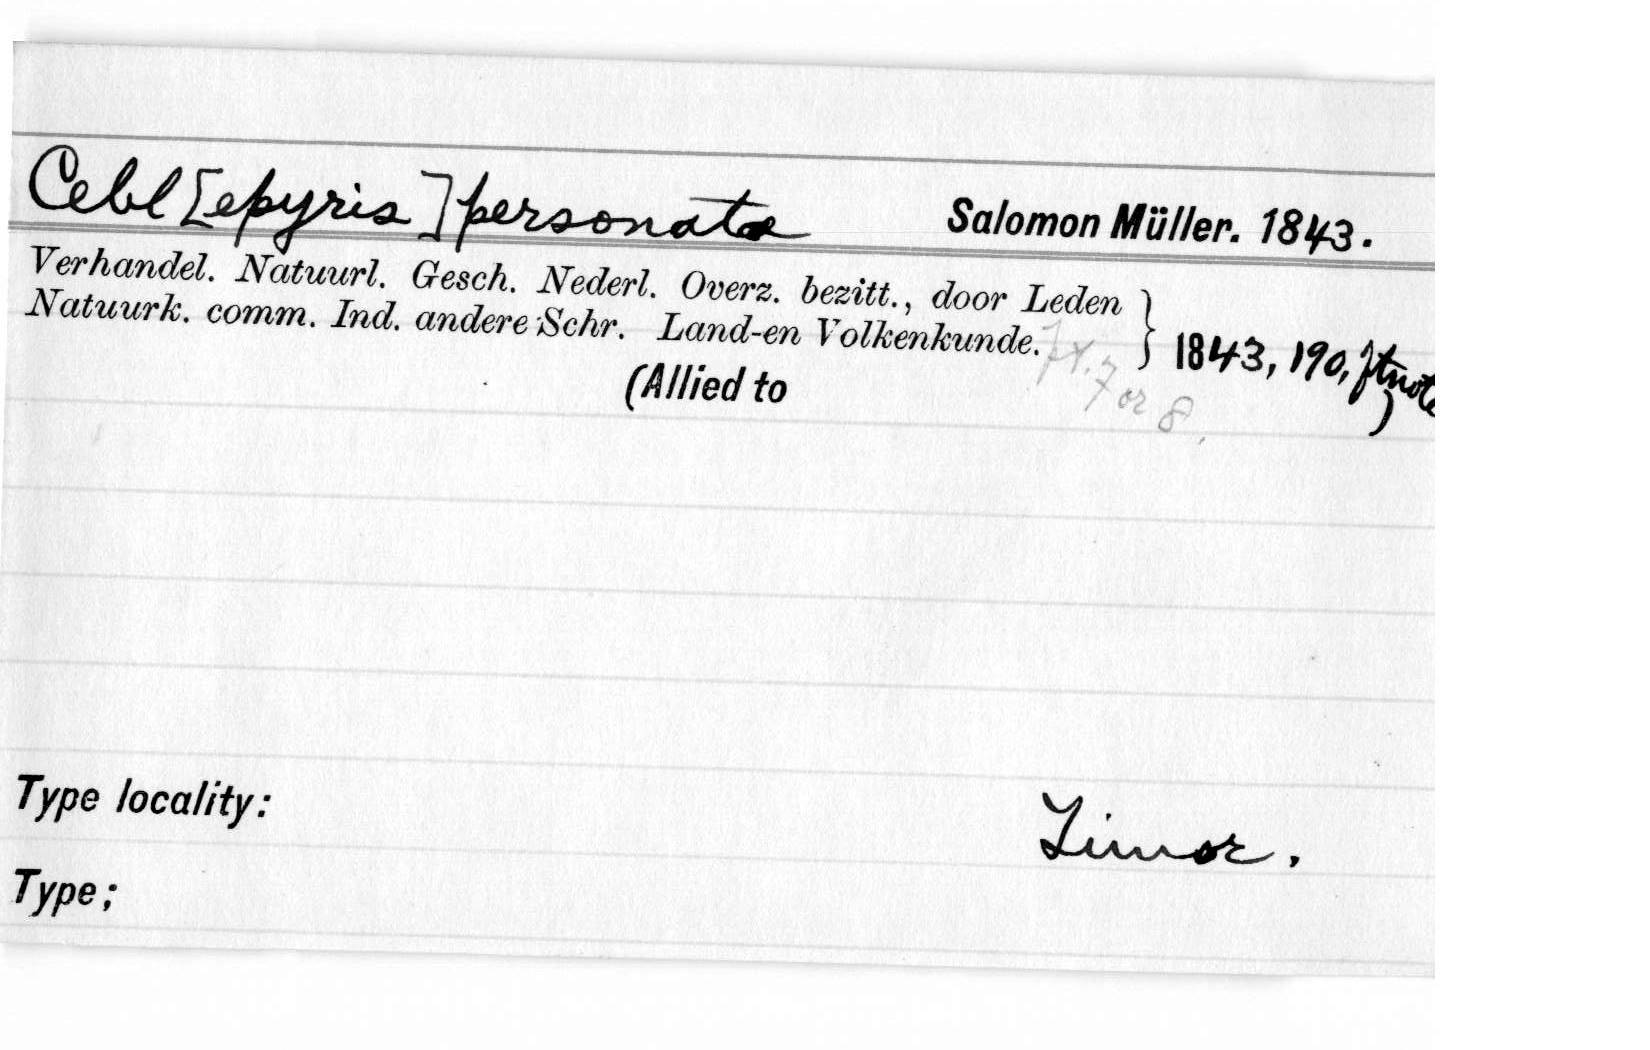 Cebl [epyris] personata Salomon Müller. 1843.
Verhandel. Natuurl. Gesch. Nederl. Overz. bezitt., door Leden
Natuurk. comm. Ind. andere Schr. Land-en Volkenkunde. } 1843, 190, ftnote
(Allied to )
7 or 8.
Type locality: Timor.
Type;